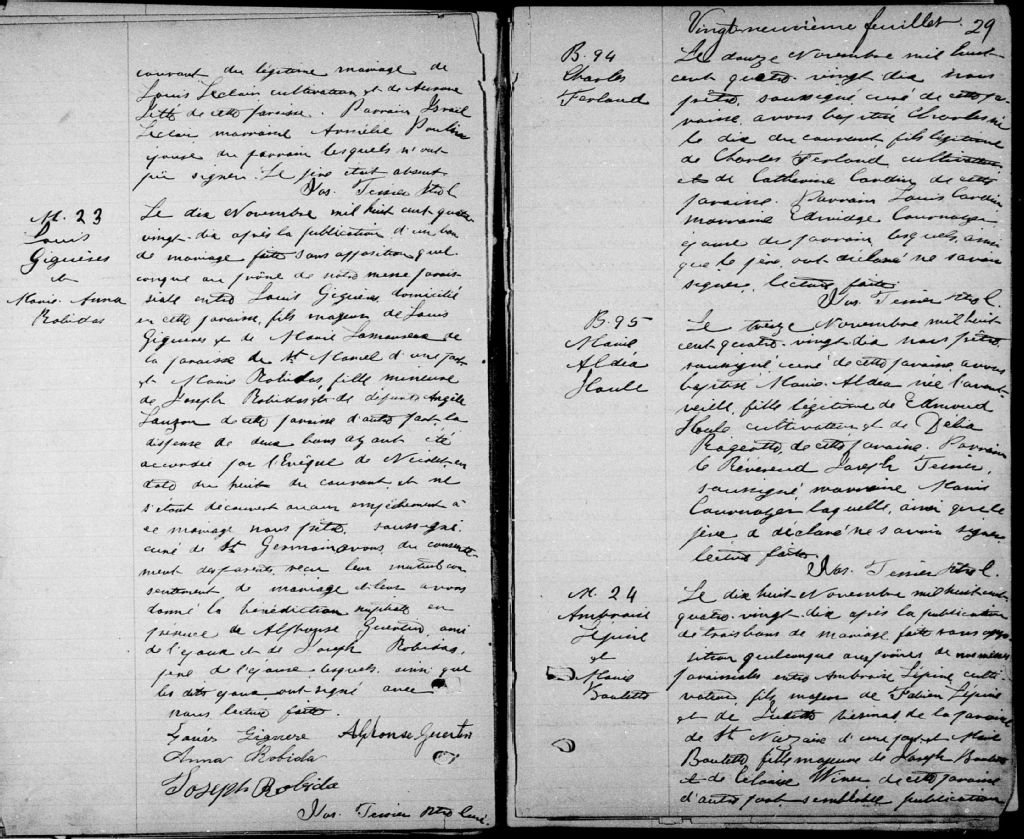 courant du légitime mariage de
Louis Leclair cultivateur et de Aurore
de cette paroisse. Parrain Israel
Leclair marraine Armélie Poulin
épouse du parrain lesquels n'ont
pu signer. Le père était absent
Jos. Tessier Ptre C.
M. 23
Louis
Giguères
et
Marie Anna
Robidas
Le dix Novembre mil huit cent quatre
vingt-dix après la publication d'un ban
de mariage faite sans opposition quel
conque au prône de notre messe parois
siale entre Louis Giguère domicilié
en cette paroisse, fils majeur de Louis
Giguères et de Marie Lamoureux de
la paroisse de St Marcel d'une part
et Marie Robidas, fille mineure
de Joseph Robidas et de défunte Angèle
Lauzon de cette paroisse d'autre part, la
dispense de deux bans ayant été
accordée par l'Evêque de Nicolet, en
date du huit du courant, et ne
s'étant découvert aucun empêchement à
ce mariage nous prêtre soussigné
curé de St Germain avons, du consente
ment des parents, reçu leur mutuel con
sentement de mariage et leur avons
donné la bénédiction nuptiale en
présence de Alphonse Guertin, ami
de l'époux et de Joseph Robidas,
père de l'épouse lesquels, ainsi que
les dits époux ont signé avec
nous lecture faite.
Louis Gignere Alphonse Guertin
Anna Robida
Joseph Robida
Jos. Tessier Ptre Curé.
Vingt-neuvième feuillet. 29
B. 94
Charles
Ferland
Le douze Novembre mil huit
cent quatre-vingt dix nous
prêtre, soussigné curé de cette pa-
roisse, avons baptisé Charles né
le dix du courant, fils légitime
de Charles Ferland cultivateur
et de Catherine Cardin de cette
paroisse. Parrain Louis Cardin
marraine Edwidge Cournoyer
épouse du parrain, lesquels, ainsi
que le père, ont déclaré ne savoir
signer, lecture faite
Jos. Tessier Ptre C.
B. 95
Marie
Aldéa
Houle
Le treize Novembre mil huit
cent quatre-vingt dix nous prêtre,
soussigné curé de cette paroisse, avons
baptisé Marie-Aldea née l'avant
veille, fille légitime de Edmond
Houle cultivateur et de Délia
Rageotte, de cette paroisse. Parrain
le Révérend Joseph Tessier,
soussigné marraine Marie
Cournoyer laquelle, ainsi que le
père a déclaré ne savoir signer
lecture faite.
Jos. Tessier Ptre C.
M. 24
Ambroise
Lépine
et
Marie
Boutotte
Le dix huit Novembre mil huit cent
quatre-vingt-dix après la publication
de trois bans de mariage faite sans oppo
sition quelconque aux prônes de nos messes
paroissiales entre Ambroise Lépine culti-
vateur, fils majeur de Fabien Lépine
et de de la paroisse
de St Nazaire d'une part et Marie
Boutotte, fille majeure de Joseph Boutotte
et de Célanire de cette paroisse
d'autre part semblable publication